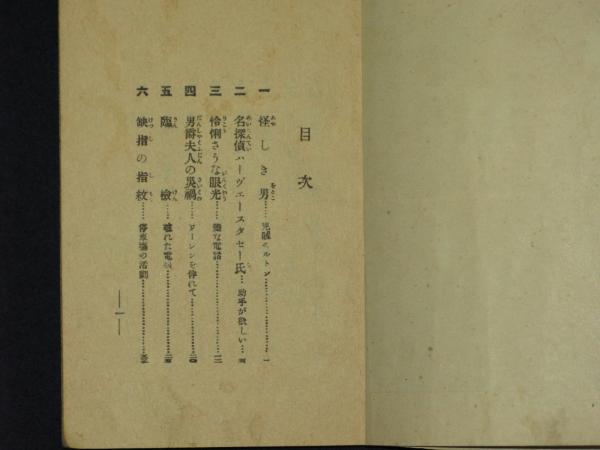 目次
一 怪しき男……兇賊ミルトン……一
二 名探偵ハーヴェースタセー氏…助手が欲しい…
三 怜悧さうな眼光……変な電話……一三
四 男爵夫人の災禍……ドーレンを伴れて……
五 臨檢……離れた電車……
六 缺指の指紋……停車場の活劇……
一